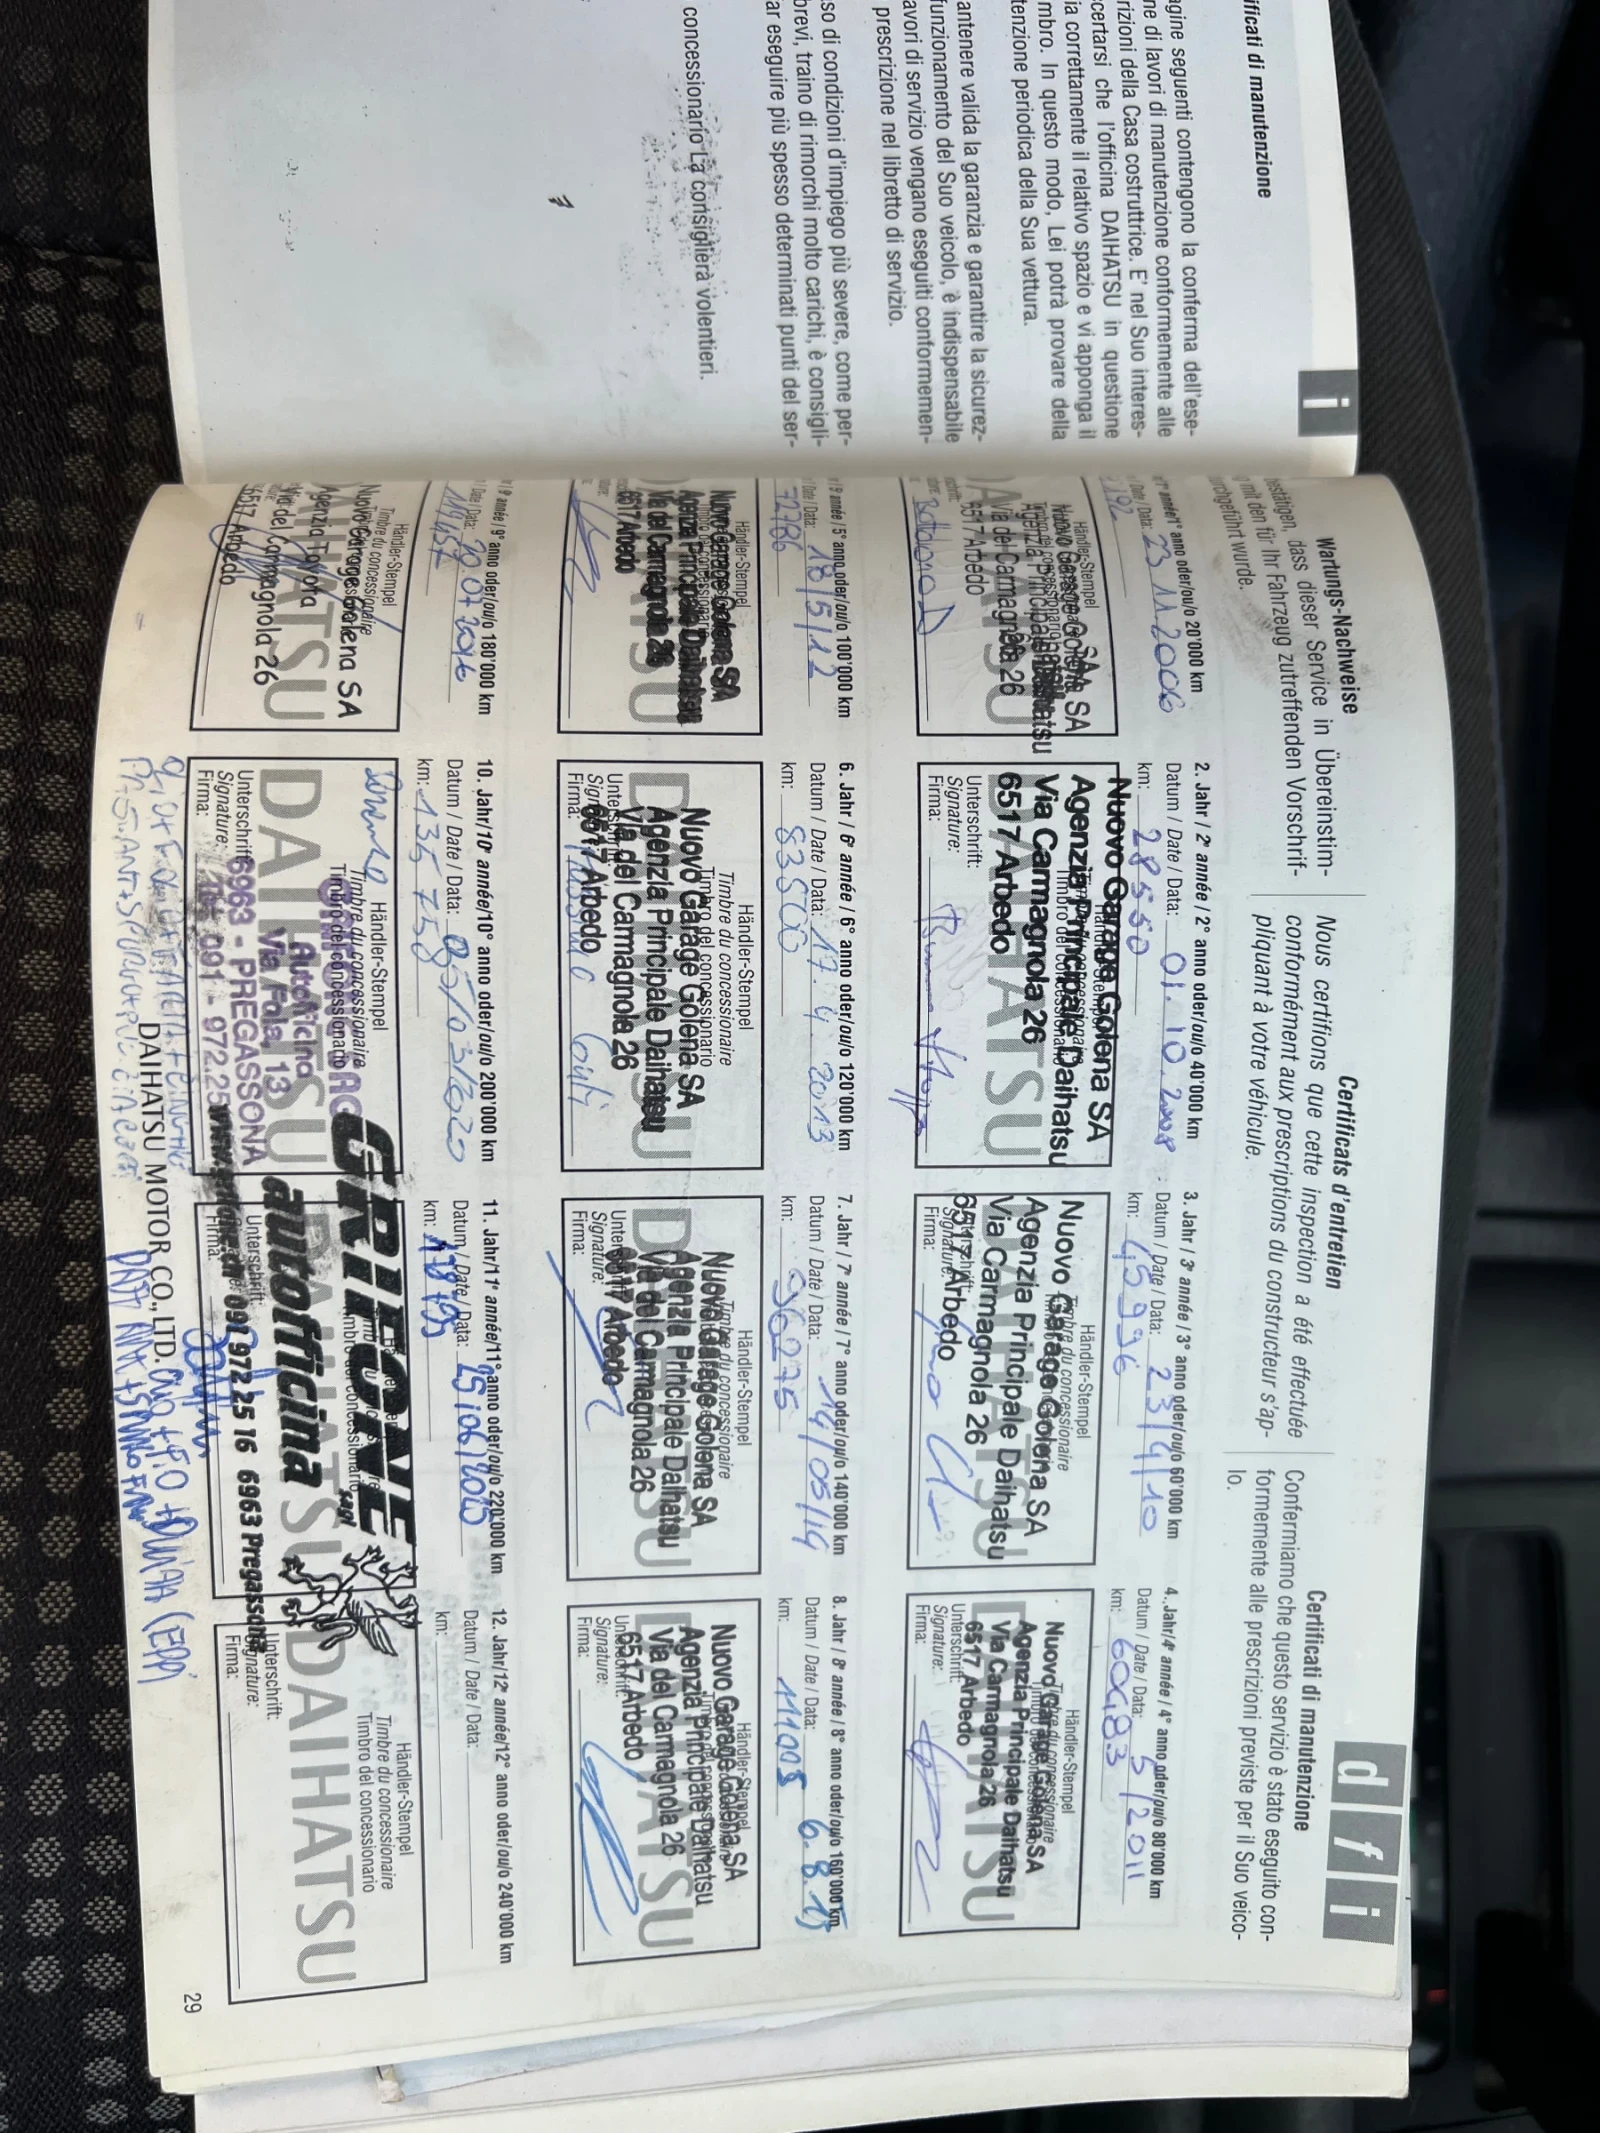 ificati di manutenzione
agine seguenti contengono la conferma dell'ese-
ne di lavori di manutenzione conformemente alle
rizioni della Casa costruttrice. E' nel Suo interes-
certarsi che l'officina DAIHATSU in questione
ia correttamente il relativo spazio e vi apponga il
mbro. In questo modo, Lei potrà provare della
tenzione periodica della Sua vettura.
antenere valida la garanzia e garantire la sicurez-
funzionamento del Suo veicolo, è indispensabile
avori di servizio vengano eseguiti conformemen-
prescrizione nel libretto di servizio.
so di condizioni d'impiego più severe, come per-
brevi, traino di rimorchi molto carichi, è consigli-
ar eseguire più spesso determinati punti del ser-
concessionario La consiglierà volentieri.
i
d f i
Wartungs-Nachweise
estätigen, dass dieser Service in Übereinstim-
mit den für Ihr Fahrzeug zutreffenden Vorschrif-
rchgeführt wurde.
Certificats d'entretien
Nous certifions que cette inspection a été effectuée
conformément aux prescriptions du constructeur s'ap-
pliquant à votre véhicule.
Certificati di manutenzione
Confermiamo che questo servizio è stato eseguito con-
formemente alle prescrizioni previste per il Suo veico-
lo.
année/1° anno oder/ou/o 20'000 km
/ Date / Data: 23.11.2006
192
Händler-Stempel
Nuovo Garage Golena SA
Agenzia Principale Daihatsu
Via del Carmagnola 26
6517 Arbedo
2. Jahr / 2e année / 2° anno oder/ou/o 40'000 km
Datum / Date / Data: 01.10.2008
km: 28550
Nuovo Garage Golena SA
Agenzia Principale Daihatsu
Via Carmagnola 26
6517 Arbedo
DAIHATSU
Unterschrift:
Signature:
Firma:
3. Jahr / 3e année / 3° anno oder/ou/o 60'000 km
Datum / Date / Data: 23/4/10
km: 45996
Händler-Stempel
Timbre du concessionaire
Nuovo Garage Golena SA
Agenzia Principale Daihatsu
Via Carmagnola 26
6517 Arbedo
Signature:
Firma:
4. Jahr/4e année / 4° anno oder/ou/o 80'000 km
Datum / Date / Data: 5/2011
km: 60483
Händler-Stempel
Nuovo Garage Golena SA
Agenzia Principale Daihatsu
Via Carmagnola 26
6517 Arbedo
Unterschrift:
Signature:
Firma:
année / 5° anno oder/ou/o 100'000 km
/ Date / Data: 18/5/12
72786
Händler-Stempel
Nuovo Garage Golena SA
Agenzia Principale Daihatsu
Via del Carmagnola 26
6517 Arbedo
6. Jahr / 6e année / 6° anno oder/ou/o 120'000 km
Datum / Date / Data: 17.4.2013
km: 83500
Händler-Stempel
Timbre du concessionaire
Timbro del concessionario
Nuovo Garage Golena SA
Agenzia Principale Daihatsu
Via del Carmagnola 26
6517 Arbedo
Firma:
7. Jahr / 7e année / 7° anno oder/ou/o 140'000 km
Datum / Date / Data: 14/05/14
km: 96275
Händler-Stempel
Timbre du concessionaire
Nuovo Garage Golena SA
Agenzia Principale Daihatsu
Via del Carmagnola 26
6517 Arbedo
Signature:
Firma:
8. Jahr / 8e année / 8° anno oder/ou/o 160'000 km
Datum / Date / Data: 6.8.15
km: 111005
Händler-Stempel
Nuovo Garage Golena SA
Agenzia Principale Daihatsu
Via del Carmagnola 26
6517 Arbedo
Signature:
Firma:
année / 9° anno oder/ou/o 180'000 km
/ Date / Data: 20.07.2016
119457
Händler-Stempel
Timbre du concessionaire
Nuovo Garage Golena SA
Agenzia Toyota
Via del Carmagnola 26
6517 Arbedo
10. Jahr/10e année/10° anno oder/ou/o 200'000 km
Datum / Date / Data: 05/03/020
km: 135758
Händler-Stempel
Timbre du concessionaire
Timbro del concessionario
Autofficina
Via Fola, 13
6963 - PREGASSONA
DAIHATSU
Unterschrift:
Signature:
Firma:
11. Jahr/11e année/11° anno oder/ou/o 220'000 km
Datum / Date / Data: 25/06/2025
km:
GRIFONE sagl
autofficina
091 972 25 16 6963 Pregassona
Unterschrift:
Firma:
12. Jahr/12e année/12° anno oder/ou/o 240'000 km
Datum / Date / Data:
km:
Händler-Stempel
Timbre du concessionaire
Timbro del concessionario
DAIHATSU
Unterschrift:
Signature:
Firma:
DAIHATSU MOTOR CO., LTD.
29